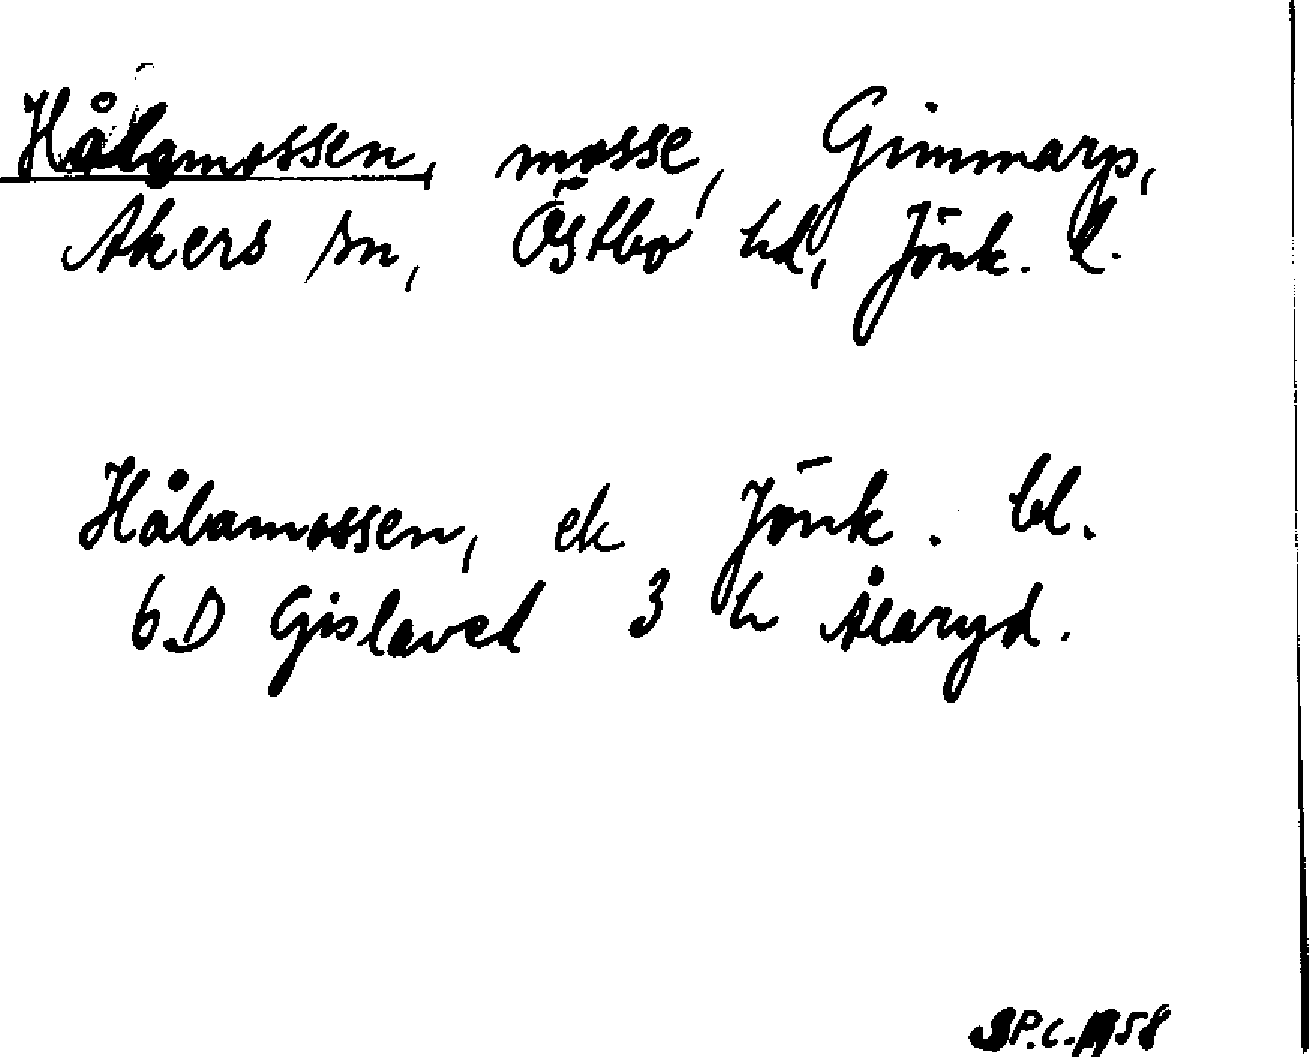 Hålamossen, mosse, Gimmarp,
Åkers sn, Östbo hd, Jönk. l.
Hålamossen, ek Jönk. bl.
6D Gislaved 3 h Ålaryd.
P.C. 1958